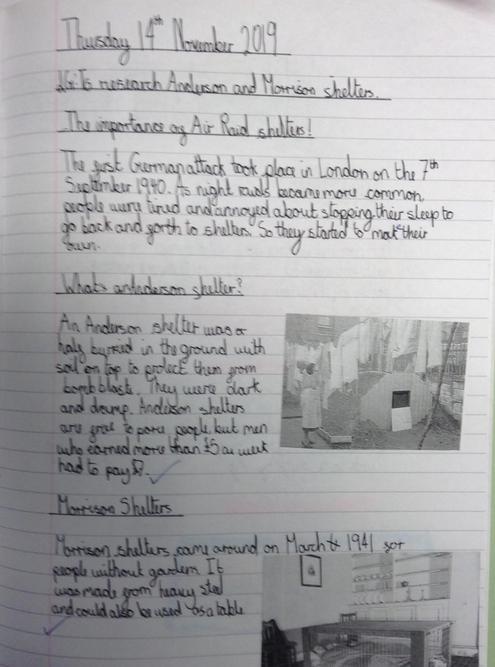 Thursday 14th November 2019
LG: To research Anderson and Morrison shelters.
The importance of Air Raid shelters!
The first German attack took place in London on the 7th
September 1940. As night raids became more common,
people were tired and annoyed about stopping their sleep to
go back and forth to shelters. So they started to make their
own.
What's an anderson shelter?
An Anderson shelter was a
half burried in the ground with
soil on top to protect them from
bomb blasts. They were dark
and damp. Anderson shelters
are free to people, but men
who earned more than £5 a week
had to pay
Morrison Shelters
Morrison shelters came around on March 1941 for
people without garden. It
was made from heavy steel
and could also be used as a table